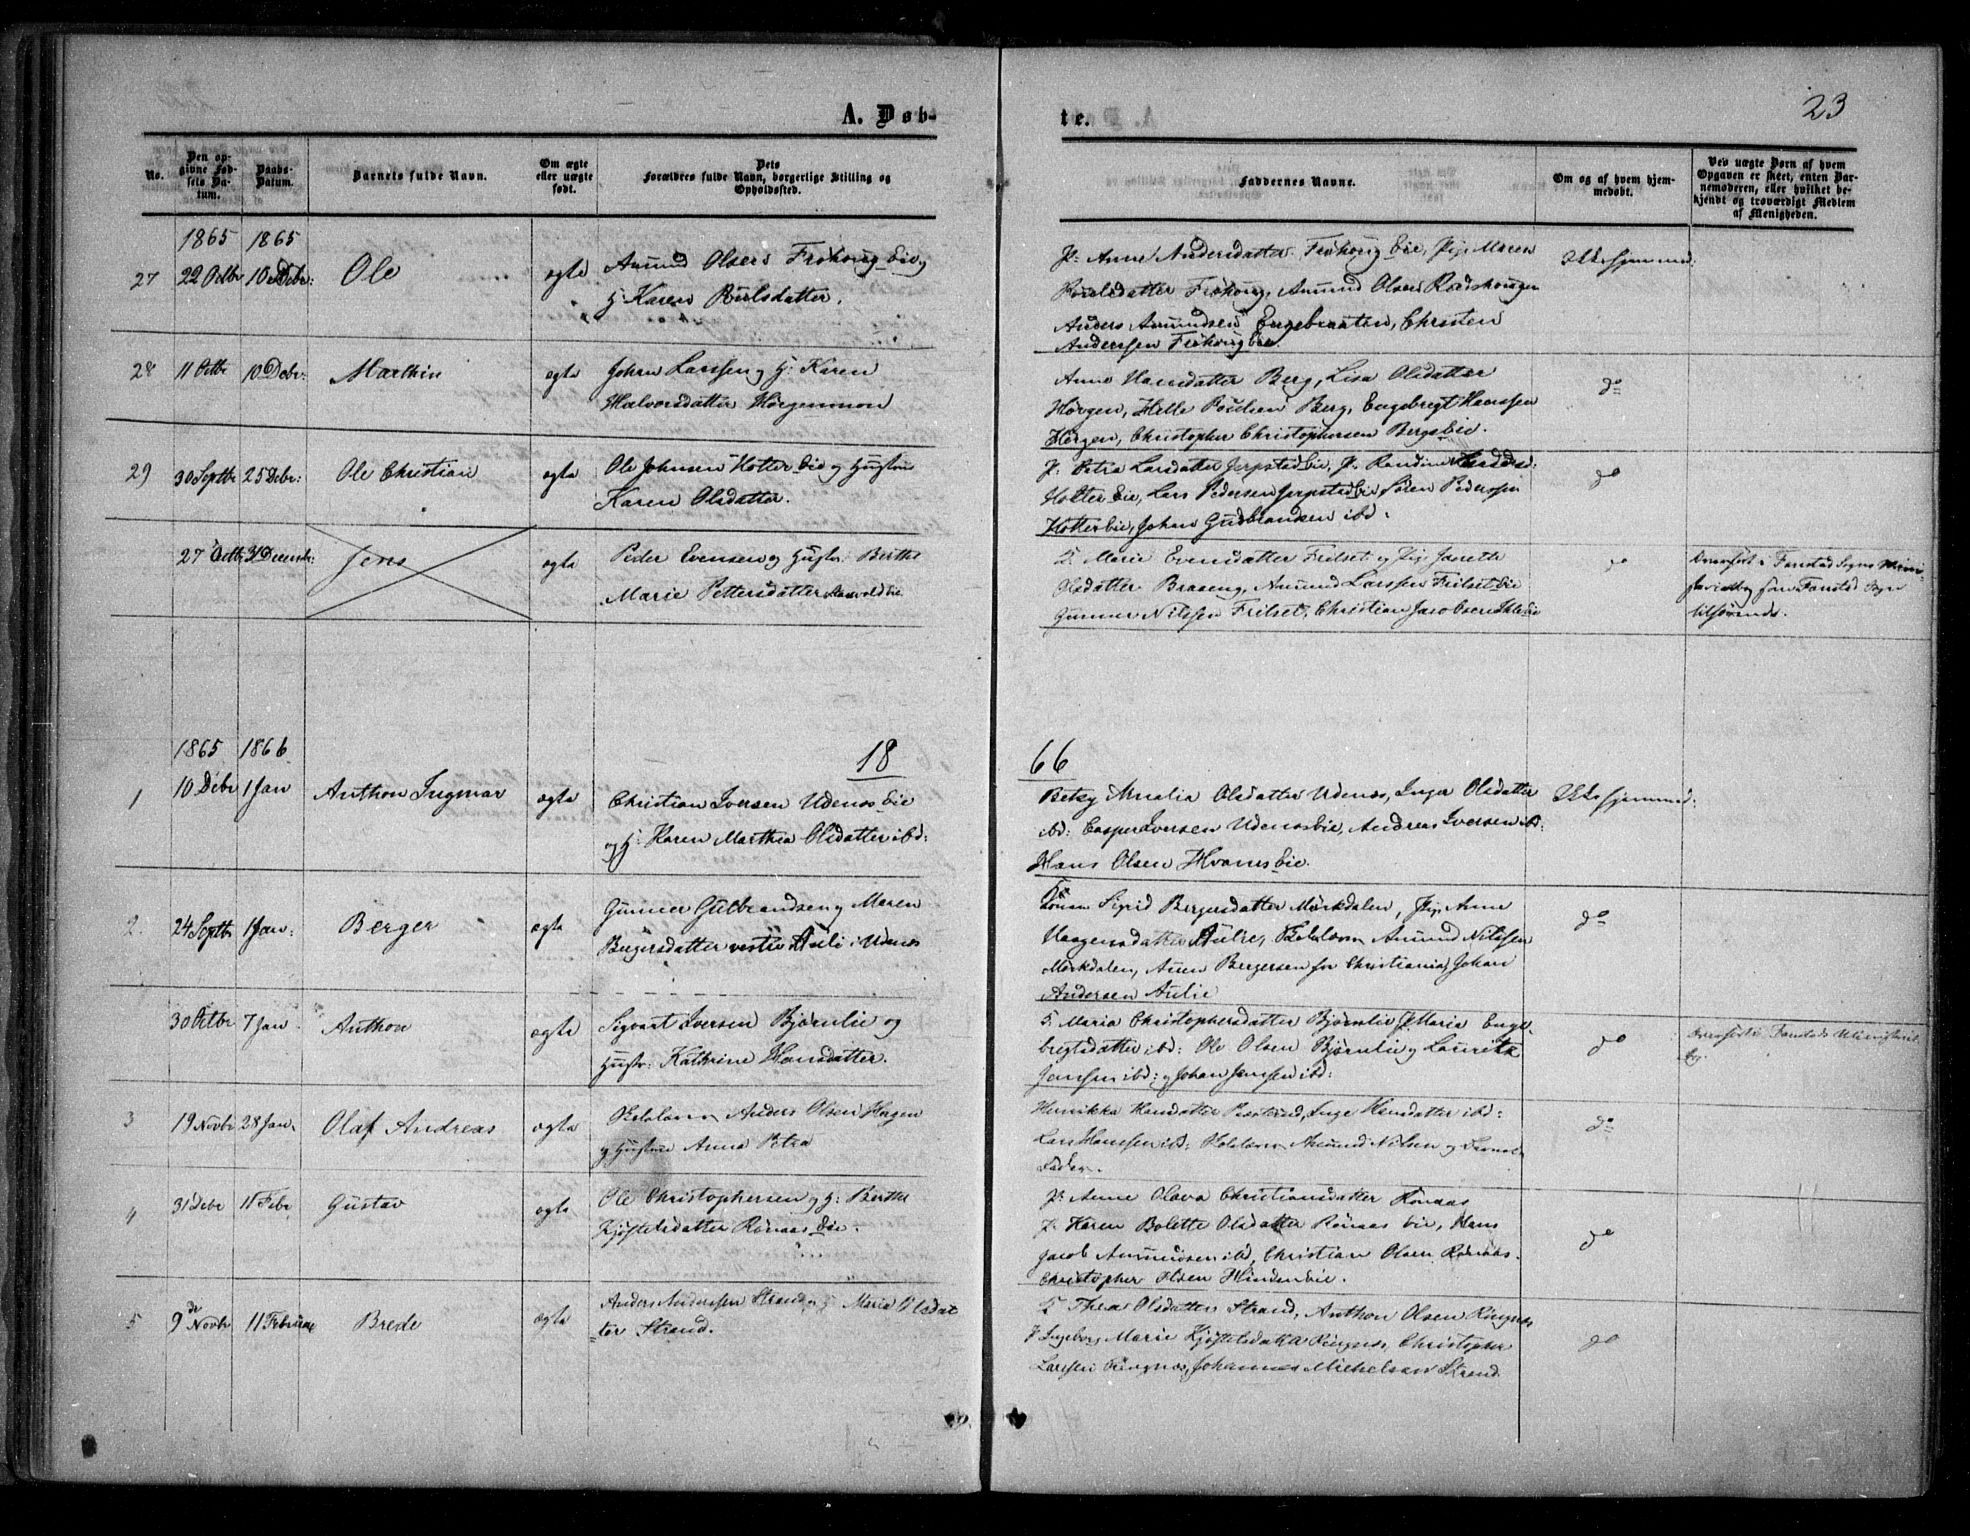 23
A. Døb-
te.
No.
Den op-
givne Fød-
sels Da-
tum.
Daabs-
Datum.
Barnets fulde Navn.
Om ægte
eller uægte
født.
Dets
Forældres fulde Navn, borgerlige Stilling og
Opholdssted.
Faddernes Navne.
Om og af hvem hjem-
medøbt.
Ved uægte Børn af hvem
Opgaven er skeet, enten Bar-
nemoderen, eller hvilket be-
kjendt og troværdigt Medlem
af Menigheden.
1865 1865
27 22 Octbr 10 Debr: Ole ægte
Amund Olsen Frøhoug eie og
H: Karen
P: Anne Andersdatter Frøhoug eie, Pig: Maren
Frøhoug, Amund Olsen
Anders Amundsen Engebraaten, Christen
Anderssen Frøhoug eie.
Ikke hjemmed:
28 11 Octbr 10 Debr: Marthin ægte
Johan Larssen og H: Karen
Halvorsdatter Horgenmoen
Anne Hansdatter Berg, Lisa Olsdatter
Horgen, Helle Poulsen Berg, Engebregt Hanssen
Horgen, Christopher Christophersen Bergseie.
do
29 30 Septbr 25 Debr: Ole Christian ægte
Ole Johnsen Holter eie og Hustru
Karen Olsdatter.
P: Petra Larsdatter Jerpstadeie, P. Randine
Holter eie, Lars Pedersen Jerpstadeie Søren Pederssen
Holtereie, Johan Gudbrandsen ibd:
do
27 Octbr 31 Decembr: Jens ægte
Peder Evensen og Hustr: Berthe
Marie Pettersdatter
K. Marie Evensdatter Frilset og Pig: Janette
Olsdatter Braaeng, Amund Larssen Frilset eie
Gunner Nilssen Frilset, Christian Jacobsen
do
Overført i Fanstad Sogns Mini-
for Fanstad Sogn
tilførende.
1865 1866
18
66
1 10 Debr 1 Jan Anthon Ingmar ægte
Christian Iversen Udenes eie
og H: Karen Marthea Olsdatter ibd:
Betzy Amalia Olsdatter Udenes, Inger Olsdatter
ibd: Casper Iversen Udeneseie, Andreas Iversen ibd:
Hans Olsen Hvameseie.
Ikke hjemmed:
2. 24 Septbr 1 Jan: Berger ægte
Gunner Gulbrandsen og Maren
Bergersdatter vestre Aulie i Udenes
Konen Sigrid Bergersdatter Mørkdalen, Pig. Anne
Haagensdatter Aulie, Amund Nilssen
Mørkdalen, Aven Bergersen for Christiania, Johan
Andersen Aulie
do
30 Octbr 7 Jan Anthon ægte
Sigvart Iversen Bjørnlie og
Hustr: Kathrine Hansdatter.
K. Maria Christophersdatter Bjørnlie P. Maria Enge-
bregtsdatter ibd: Ole Olsen Bjørnlie og Lauritz
Jansen ibd: og Johan Jansen ibd:
do
Overført i Fanstads Ministeril
bog.
3 19 Novbr 28 Jan. Olaf Andreas ægte
Anders Olsen Hagen
og Hustru Anna Petra
Henrikka Hansdatter Inge Hansdatter ibd:
Lars Hanssen ibd: Amund Nilsen og Barnets
Fader.
do
4 31 Debr 11 Febr Gustav ægte
Ole Christophersen og H: Berthe
Kjøstelsdatter Rønaas eie.
P: Anne Olava Christiansdatter Rønaas
P. Karen Bolette Olsdatter Rønaas eie, Hans
Jacob Amundsen ibd, Christian Olsen Rønaas.
Christopher Olsen Hindeneie.
do
5 9de Novbr 11 Februar Brede ægte
Anders Anderssen Strand og H. Maria Olsdat
ter Strand.
K. Thea Olsdatter Strand, Anthon Olsen Ringnes
P Ingeborg Marie Kjøstelsdatter Ringnes, Christopher
Larssen Ringnes, Johannes Michelsen Strand
do